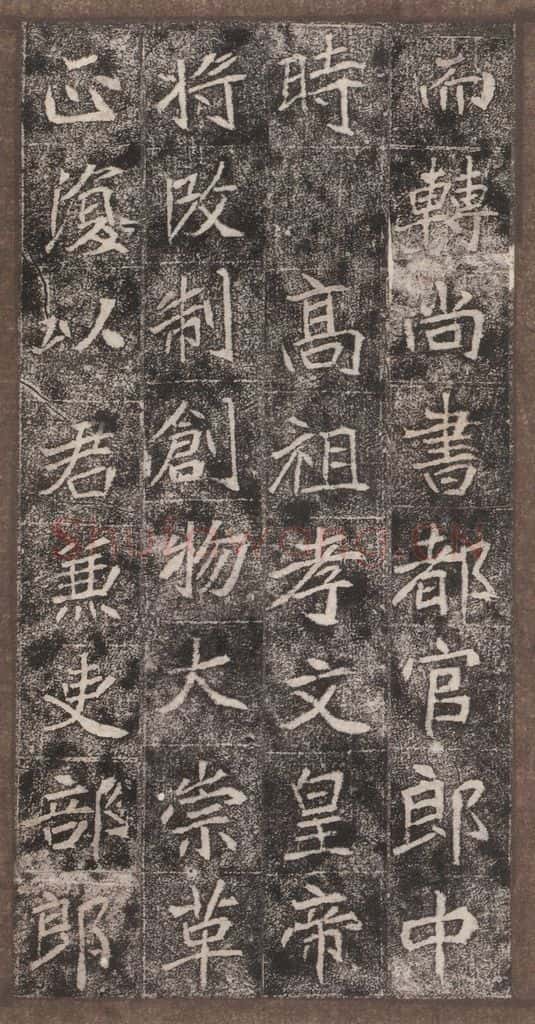 而轉尚書都官郎中
時 高祖孝文皇帝
將改制創物大崇革
正復以君兼吏部郎
Shufawang.CN